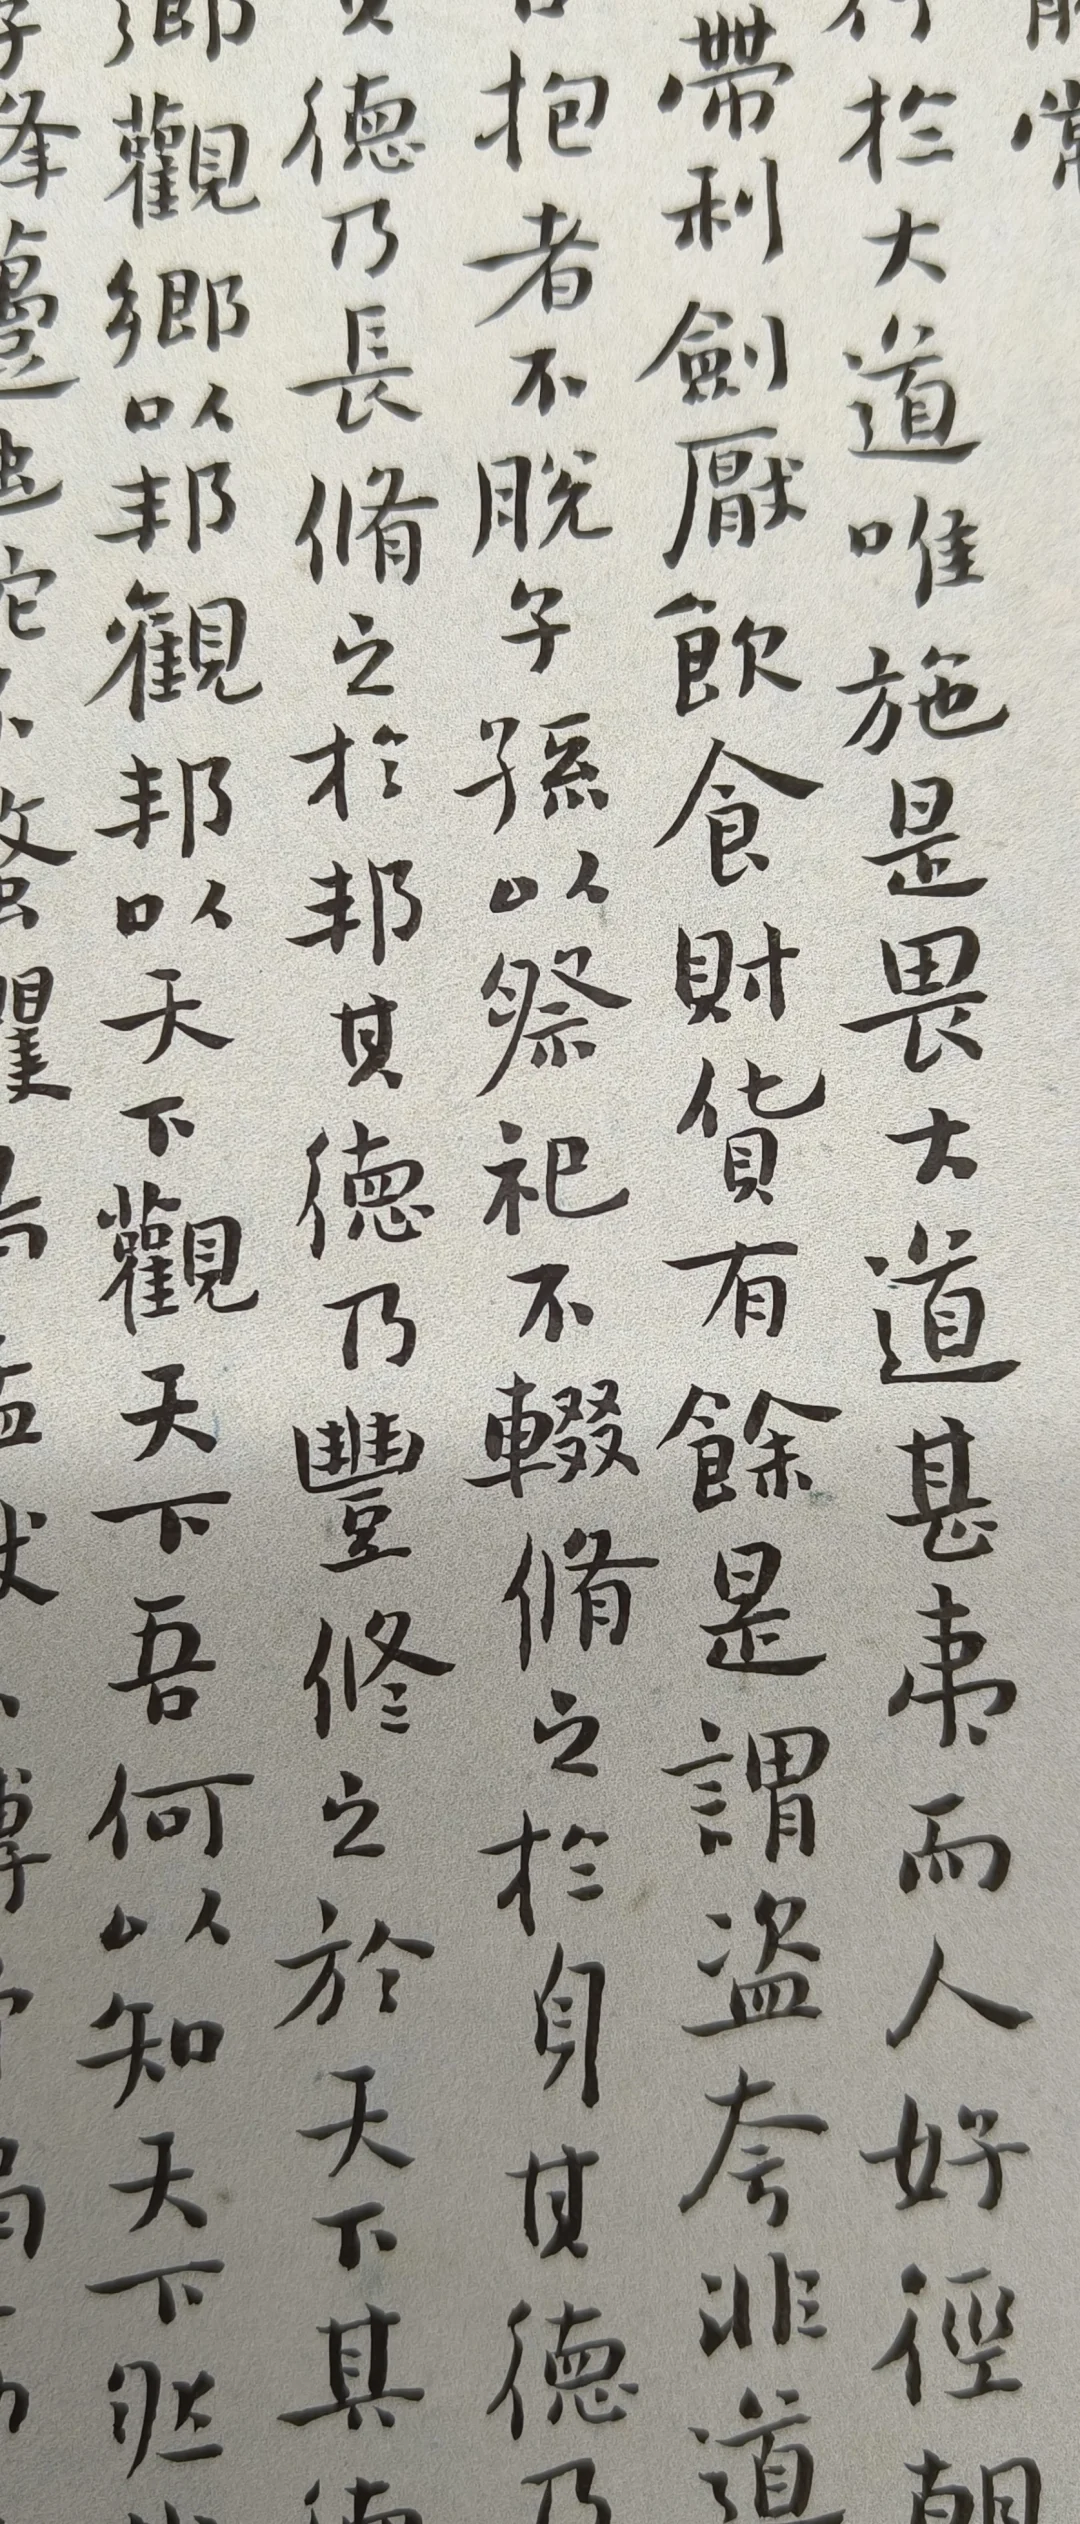 常
行於大道唯施是畏大道甚夷而人好徑朝
帶利劍厭飲食財貨有餘是謂盗夸非道
抱者不脫子孫以祭祀不輟脩之於身其德乃
德乃長脩之於邦其德乃豐修之於天下其德
鄉觀鄉以邦觀邦以天下觀天下吾何以知天下然
螫玃